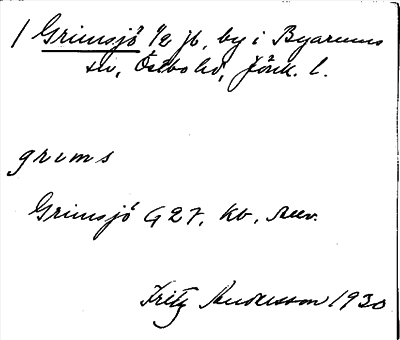 1 Grimsjö 1/2 jb, by i Byarums
sn, Östbo hd, Jönk. l.
grims
Grimsjö 927, kb, 
Fritz Andersson 1930